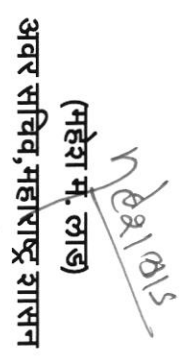 (महेश म. लाड)
अवर सचिव, महाराष्ट्र शासन